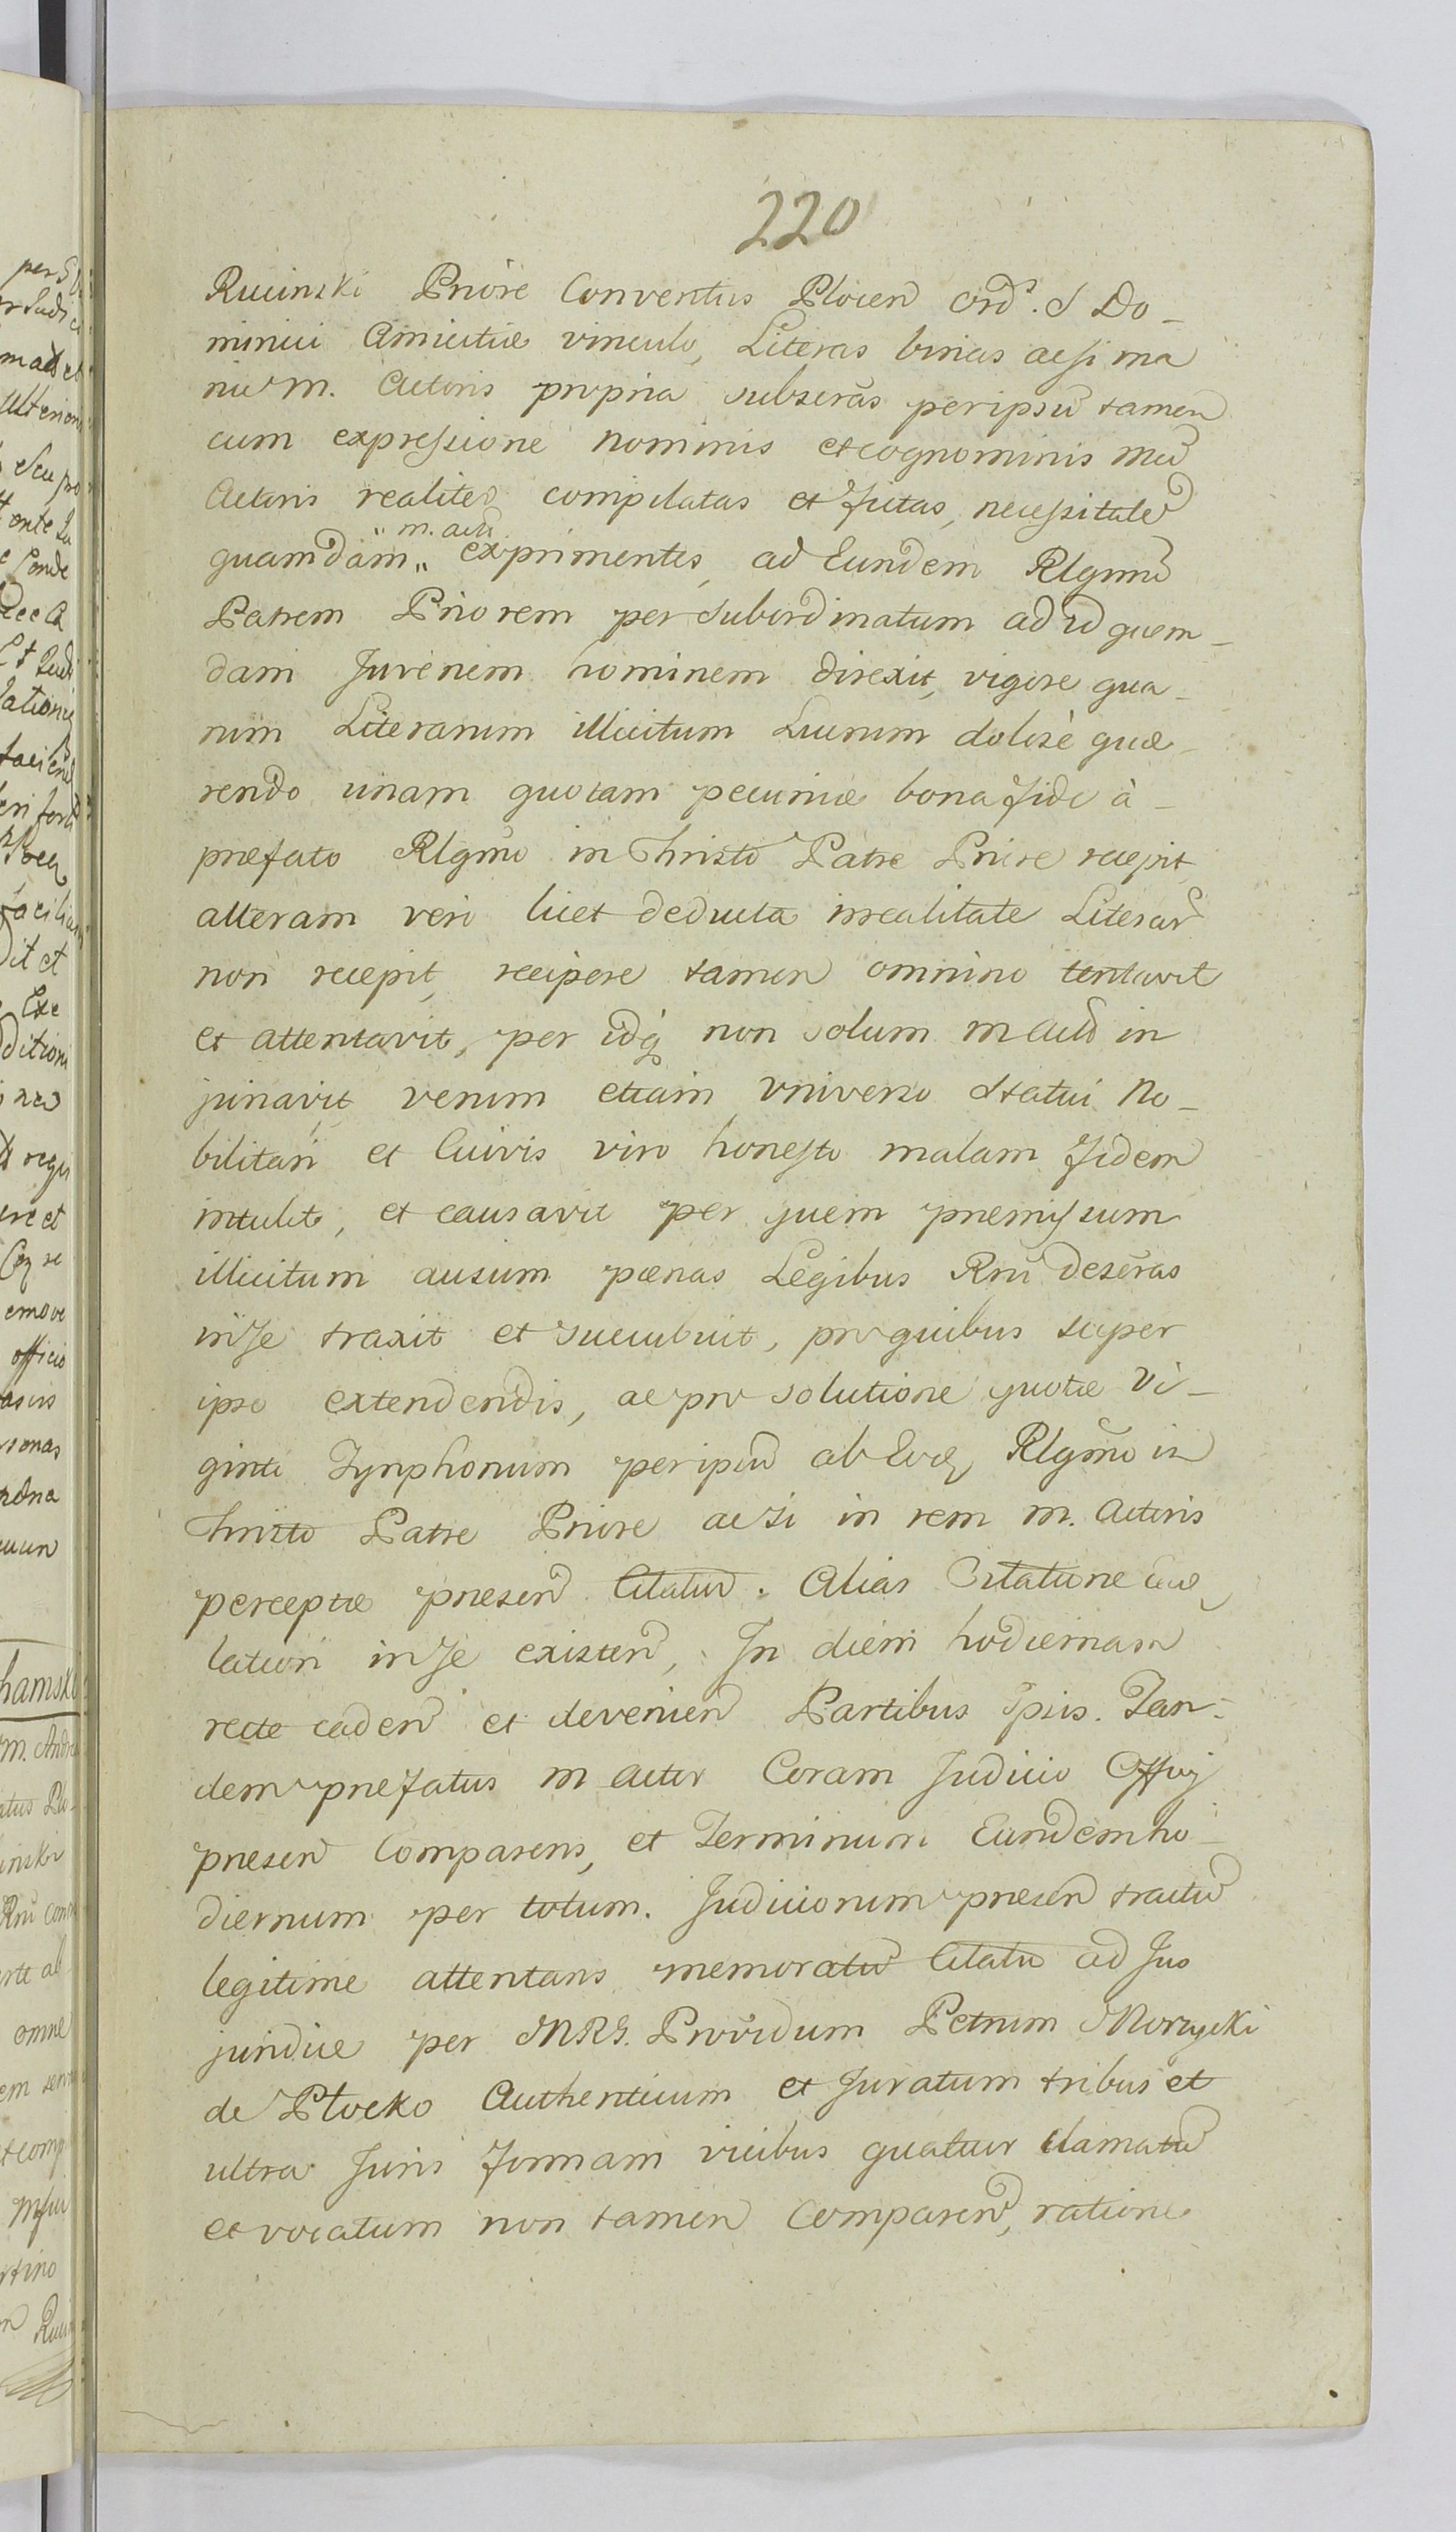 220
Rucinski Priore Conventus Plocen Ord. S Do-
minici Amicitiæ vinculo, Literas binas acsi ma
nu M. Actoris propria subscras per ipsũ tamen
cum expressione nominis et cognominis
Actoris realiter compilatas et fictas, necessitatem
m. acti
quamdam „ exprimentes, ad Eundem Rlgmũ
Patrem Priorem per subordinatum ad id quem-
dam Juvenem hominem direxit, vigore qua-
rum Literarum illicitum Lucrum dolosè quæ-
rendo unam quotam pecuniæ bona fide à-
præfato Rlgmo in Christo Patre Priore recepit,
alteram vero licet deducta irrealitate Literar
non recepit, recipere tamen omnino tentavit
et attentavit, per idq non solum M actũ in
juriavit, verum etiam Universo Statui No-
bilitari et Cuivis viro honesto malam fidem
intulit, et causavit per quem præmissum
illicitum ausum pænas Legibus Rni descras
in se traxit et succubuit, pro quibus super
ipso extendendis, ac pro solutione quotæ Vi-
ginti Tynphonum per ipsũ ab Eoq Rlgmo in
Christo Patre Priore acsi in rem M. Actoris
perceptæ præsen Citatũ. Alias Citatione
latiori in se existen, In diem hodiernam
recte caden et devenien Partibus ipsis. Tan-
dem præfatus M Actor Coram Judicio Offij
præsen Comparens, et Terminum Eundem ho-
diernum per totum. Judiciorum præsen tractũ
legitime attentans memoratũ Citatũ ad Jus
juridice per MRG. Providum Petrum Morzycki
de Plocko Authenticum et Juratum tribus et
ultra Juris formam vicibus quatuor clamatũ
et vocatum non tamen Comparen, ratione